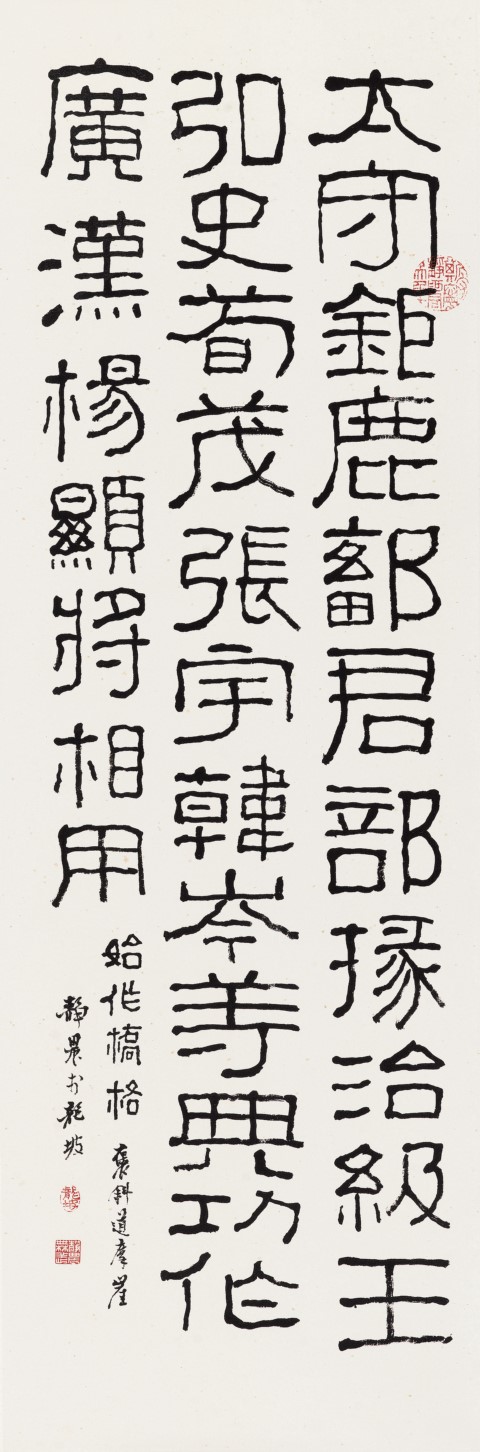 太守鉅鹿鄐君部掾治級王
弘史荀茂張宇韓岑等典功作
廣漢楊顯將相用
始作橋格 褒斜道摩崖
靜農於龍坡